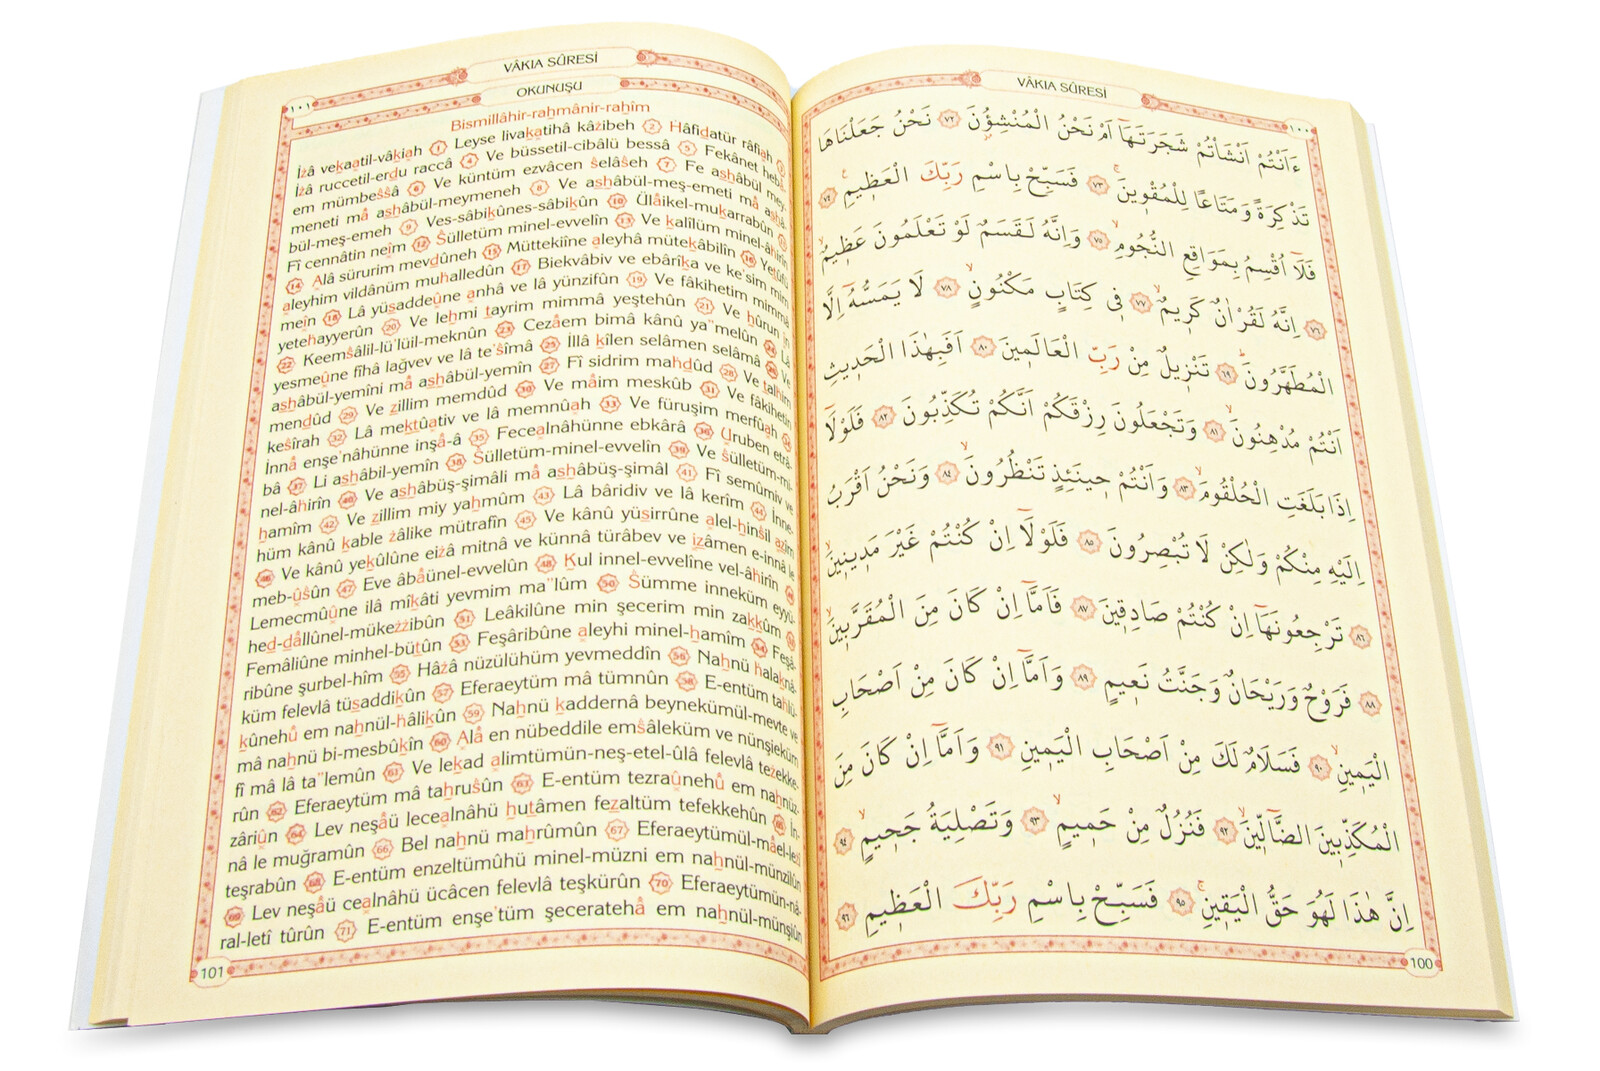 VÂKIA SÛRESİ
١٠٠
ءَاَنْتُمْ اَنْشَأْتُمْ شَجَرَتَهَٓا اَمْ نَحْنُ الْمُنْشِؤُ۫نَ ﴿٧٢﴾ نَحْنُ جَعَلْنَاهَا
تَذْكِرَةً وَمَتَاعًا لِلْمُقْوٖينَۚ ﴿٧٣﴾ فَسَبِّحْ بِاسْمِ رَبِّكَ الْعَظٖيمِۚ ﴿٧٤﴾
فَلَٓا اُقْسِمُ بِمَوَاقِعِ النُّجُومِۙ ﴿٧٥﴾ وَاِنَّهُ لَقَسَمٌ لَوْ تَعْلَمُونَ عَظٖيمٌۙ
﴿٧٦﴾ اِنَّهُ لَقُرْاٰنٌ كَرٖيمٌۙ ﴿٧٧﴾ فٖى كِتَابٍ مَكْنُونٍۙ ﴿٧٨﴾ لَا يَمَسُّهُٓ اِلَّا
الْمُطَهَّرُونَۜ ﴿٧٩﴾ تَنْزٖيلٌ مِنْ رَبِّ الْعَالَمٖينَ ﴿٨٠﴾ اَفَبِهٰذَا الْحَدٖيثِ
اَنْتُمْ مُدْهِنُونَۙ ﴿٨١﴾ وَتَجْعَلُونَ رِزْقَكُمْ اَنَّكُمْ تُكَذِّبُونَ ﴿٨٢﴾ فَلَوْلَٓا
اِذَا بَلَغَتِ الْحُلْقُومَۙ ﴿٨٣﴾ وَاَنْتُمْ حٖينَئِذٍ تَنْظُرُونَۙ ﴿٨٤﴾ وَنَحْنُ اَقْرَبُ
اِلَيْهِ مِنْكُمْ وَلٰكِنْ لَا تُبْصِرُونَ ﴿٨٥﴾ فَلَوْلَٓا اِنْ كُنْتُمْ غَيْرَ مَدٖينٖينَۙ
﴿٨٦﴾ تَرْجِعُونَهَٓا اِنْ كُنْتُمْ صَادِقٖينَ ﴿٨٧﴾ فَاَمَّٓا اِنْ كَانَ مِنَ الْمُقَرَّبٖينَۙ
﴿٨٨﴾ فَرَوْحٌ وَرَيْحَانٌ وَجَنَّتُ نَعٖيمٍ ﴿٨٩﴾ وَاَمَّٓا اِنْ كَانَ مِنْ اَصْحَابِ
الْيَمٖينِۙ ﴿٩٠﴾ فَسَلَامٌ لَكَ مِنْ اَصْحَابِ الْيَمٖينِ ﴿٩١﴾ وَاَمَّٓا اِنْ كَانَ مِنَ
الْمُكَذِّبٖينَ الضَّٓالّٖينَۙ ﴿٩٢﴾ فَنُزُلٌ مِنْ حَمٖيمٍۙ ﴿٩٣﴾ وَتَصْلِيَةُ جَحٖيمٍۙ ﴿٩٤﴾
اِنَّ هٰذَا لَهُوَ حَقُّ الْيَقٖينِۚ ﴿٩٥﴾ فَسَبِّحْ بِاسْمِ رَبِّكَ الْعَظٖيمِ ﴿٩٦﴾
100
VÂKIA SÛRESİ
١٠١
OKUNUŞU
Bismillâhir-rahmânir-rahîm
İżâ vekaatil-vâkiah 1 Leyse livakatihâ kâżibeh 2 Hâfidatür râfiah 3
İżâ ruccetil-erdu raccâ 4 Ve büssetil-cibâlü bessâ 5 Fekânet hebâ-
em mümbeŝŝâ 6 Ve küntüm ezvâcen ŝelâŝeh 7 Fe ashâbül mey-
meneti mâ ashâbül-meymeneh 8 Ve ashâbül-meş-emeti mâ ashâ-
bül-meş-emeh 9 Ves-sâbikûnes-sâbikûn 10 Ülâikel-mukarrabûn 11
Fî cennâtin neîm 12 Ŝülletüm minel-evvelîn 13 Ve kalîlüm minel-âhirîn
14 Alâ sürurim mevdûneh 15 Müttekiîne aleyhâ mütekâbilîn 16 Yetûfü
aleyhim vildânüm muhalledûn 17 Biekvâbiv ve ebârîka ve ke'sim mim
meîn 18 Lâ yüsaddeûne anhâ ve lâ yünzifûn 19 Ve fâkihetim mimmâ
yetehayyerûn 20 Ve lehmi tayrim mimmâ yeştehûn 21 Ve hûrun în
22 Keemŝâlil-lü'lüil-meknûn 23 Cezâem bimâ kânû ya'melûn 24 Lâ
yesmeûne fîhâ lağvev ve lâ te'ŝîmâ 25 İllâ kîlen selâmen selâmâ 26 Ve
ashâbül-yemîni mâ ashâbül-yemîn 27 Fî sidrim mahdûd 28 Ve talhim
mendûd 29 Ve zillim memdûd 30 Ve mâim meskûb 31 Ve fâkihetin
keŝîrah 32 Lâ mektûativ ve lâ memnûah 33 Ve füruşim merfûah 34
İnnâ enşe'nâhünne inşâ-â 35 Fecealnâhünne ebkârâ 36 Uruben etrâ-
bâ 37 Li ashâbil-yemîn 38 Ŝülletüm-minel-evvelîn 39 Ve ŝülletüm-mi-
nel-âhirîn 40 Ve ashâbüş-şimâli mâ ashâbüş-şimâl 41 Fî semûmiv ve
hamîm 42 Ve zillim miy yahmûm 43 Lâ bâridiv ve lâ kerîm 44 İnne-
hüm kânû kable żâlike mütrafîn 45 Ve kânû yüsirrûne alel-hinŝil azîm
46 Ve kânû yekûlûne eiżâ mitnâ ve künnâ türâbev ve izâmen e-innâ le
meb-ûŝûn 47 Eve âbâünel-evvelûn 48 Kul innel-evvelîne vel-âhirîn 49
Lemecmûûne ilâ mîkâti yevmim ma'lûm 50 Ŝümme inneküm eyyü-
hed-dâllûnel-mükeżżibûn 51 Leâkilûne min şecerim min zakkûm 52
Femâliûne minhel-bütûn 53 Feşâribûne aleyhi minel-hamîm 54 Feşâ-
ribûne şurbel-hîm 55 Hâżâ nüzülühüm yevmeddîn 56 Nahnü halaknâ-
küm felevlâ tüsaddikûn 57 Eferaeytüm mâ tümnûn 58 E-entüm tahlü-
kûnehû em nahnül-hâlikûn 59 Nahnü kaddernâ beynekümül-mevte ve
mâ nahnü bi-mesbûkîn 60 Alâ en nübeddile emŝâleküm ve nünşieküm
fî mâ lâ ta'lemûn 61 Ve lekad alimtümün-neş-etel-ûlâ felevlâ teżekke-
rûn 62 Eferaeytüm mâ tahruŝûn 63 E-entüm tezraûnehû em nahnüz-
zâriûn 64 Lev neşâü lecealnâhü hutâmen fezaltüm tefekkehûn 65 İn-
nâ le muğramûn 66 Bel nahnü mahrûmûn 67 Eferaeytümül-mâel-leżî
teşrabûn 68 E-entüm enzeltümûhü minel-müzni em nahnül-münzilûn
69 Lev neşâü cealnâhü ücâcen felevlâ teşkürûn 70 Eferaeytümün-nâ-
ral-letî tûrûn 71 E-entüm enşe'tüm şeceratehâ em nahnül-münşiûn
101